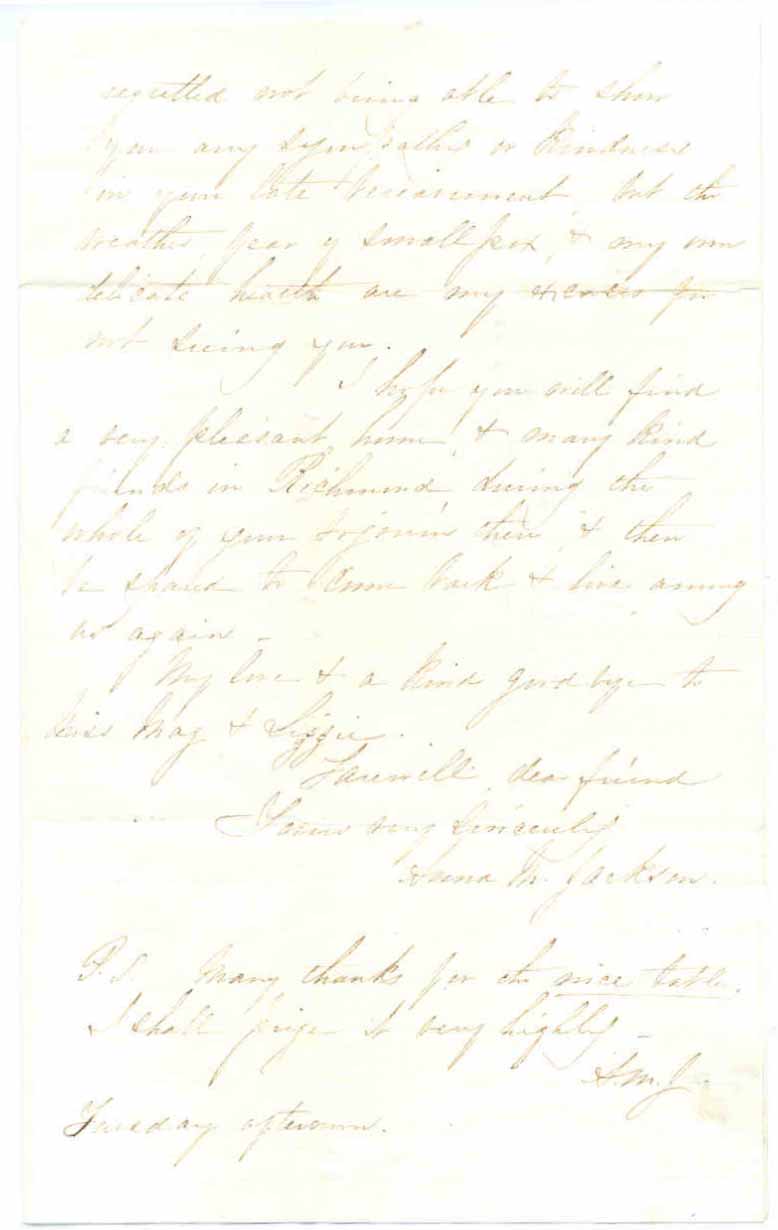 regretted not being able to show
you any sympathy or kindness
in your late bereavement, but the
weather, fear of smallpox, & my own
delicate health are my excuses for
not seeing you.
I hope you will find
a very pleasant home, & many kind
friends in Richmond during the
whole of your sojourn there, & then
be spared to come back & live among
us again -
My love & a kind good bye to
Miss Mag & Lizzie.
Farewell, dear friend
Yours very sincerely
Anna M. Jackson.
P.S. Many thanks for the nice table.
I shall prize it very highly -
A.M.J.
Tuesday afternoon.